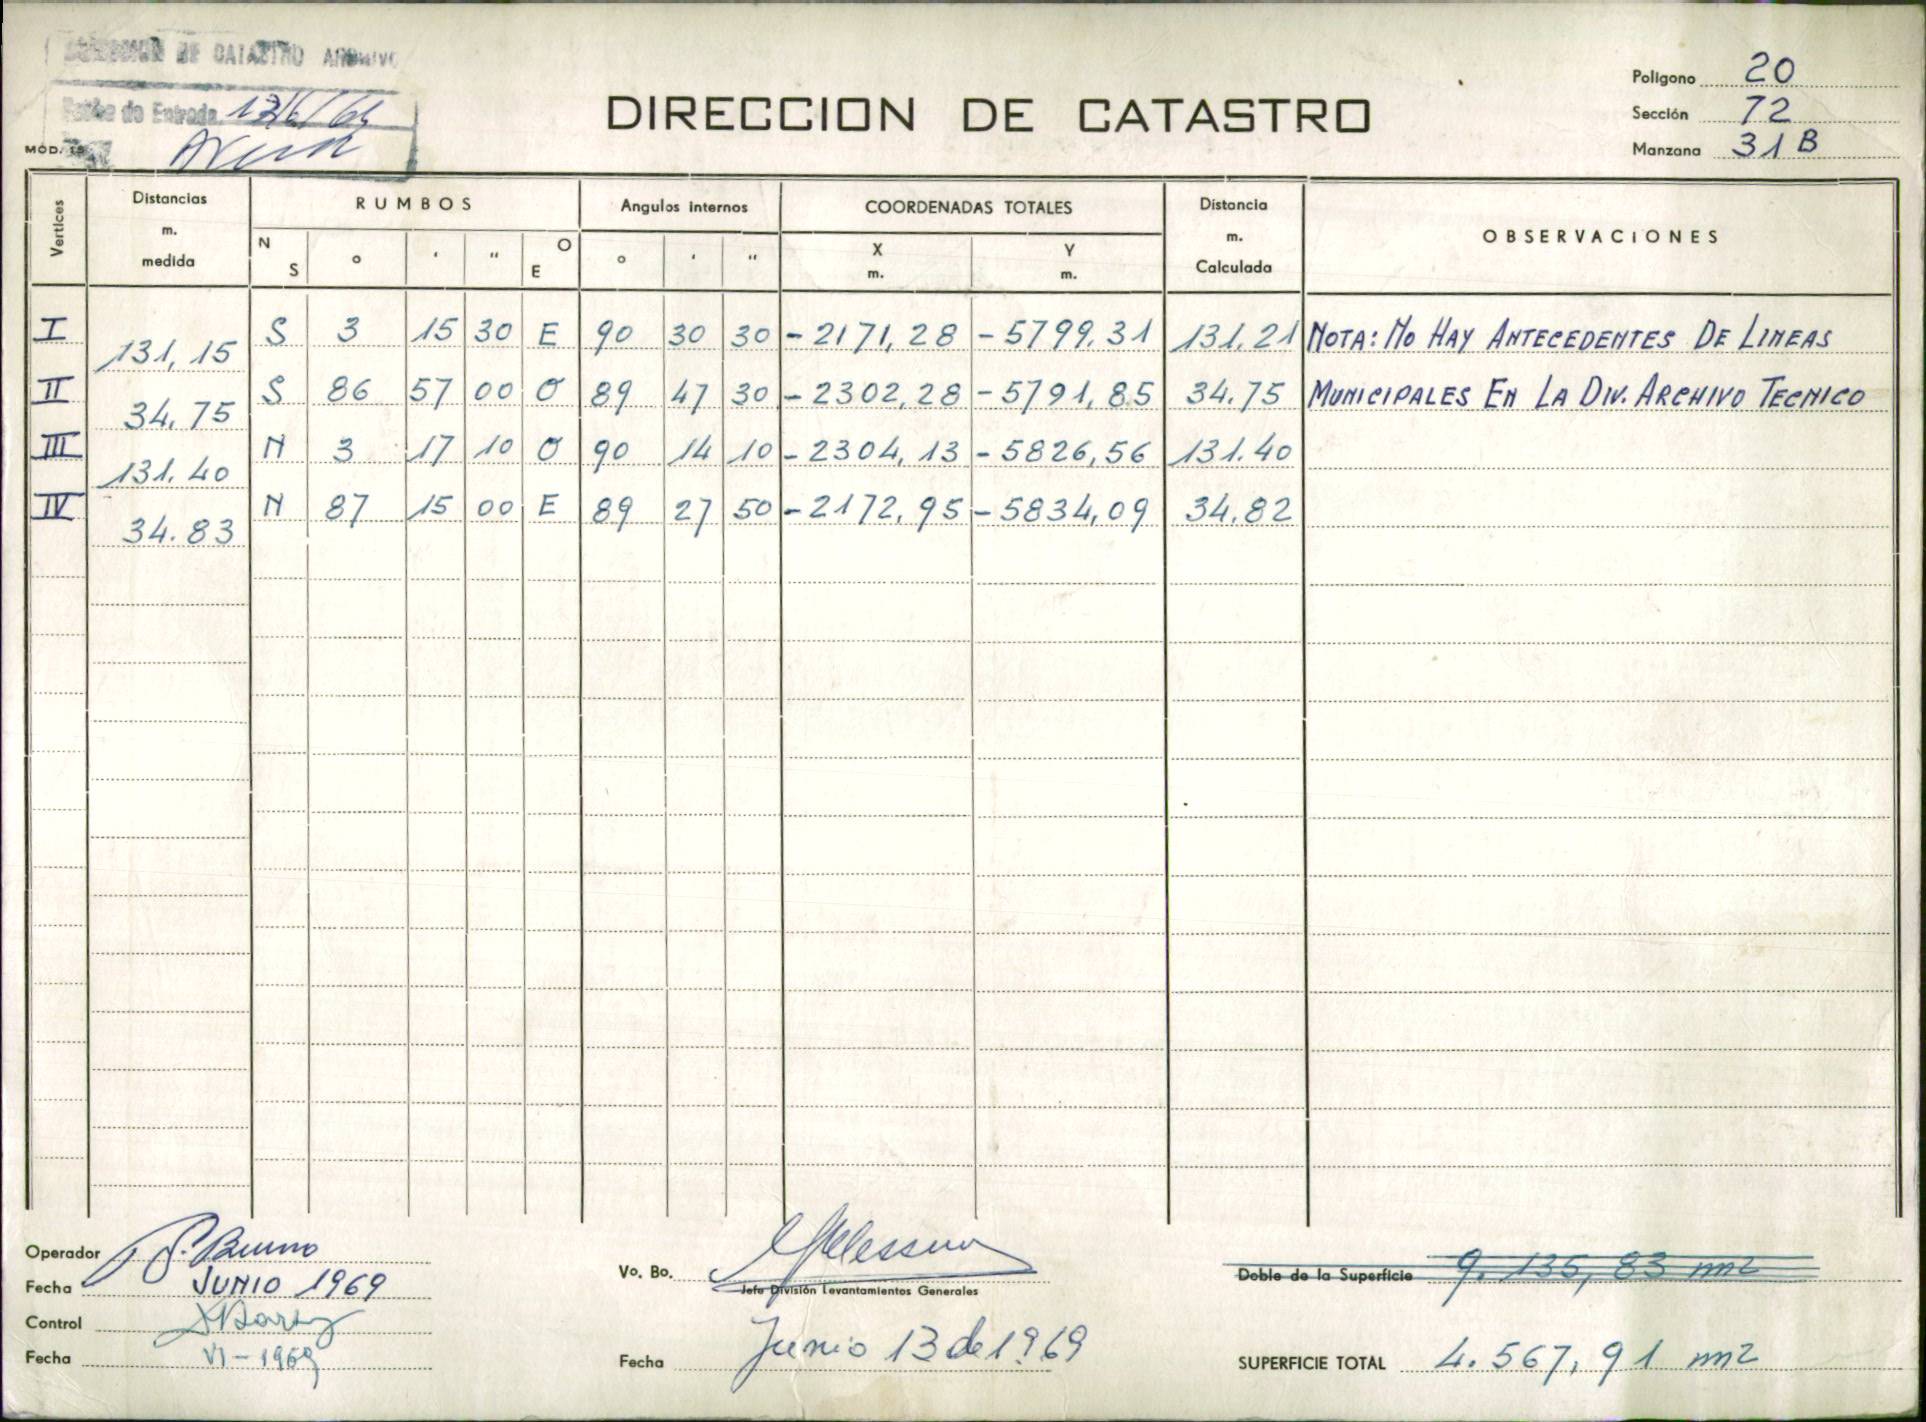 DIRECCION DE CATASTRO ARCHIVO
de Entrada 13/6/69
MOD. 15
DIRECCION DE CATASTRO
Polígono 20
Sección 72
Manzana 31 B
Vertices
Distancias m. medida
RUMBOS
N S ° ' " O E
Angulos internos
° ' "
COORDENADAS TOTALES
X m. Y m.
Distancia m. Calculada
OBSERVACIONES
I 131,15 S 3 15 30 E 90 30 30 -2171,28 -5799.31 131.21 NOTA: NO HAY ANTECEDENTES DE LINEAS
II 34.75 S 86 57 00 O 89 47 30 -2302,28 -5791,85 34.75 MUNICIPALES EN LA DIV. ARCHIVO TECNICO
III 131.40 N 3 17 10 O 90 14 10 -2304,13 -5826,56 131.40
IV 34.83 N 87 15 00 E 89 27 50 -2172,95 -5834,09 34.82
Operador
Fecha JUNIO 1969
Control
Fecha VI-1969
Vo. Bo.
Jefe División Levantamientos Generales
Fecha Junio 13 de 1969
Doble de la Superficie 9.135,83 m2
SUPERFICIE TOTAL 4.567,91 m2